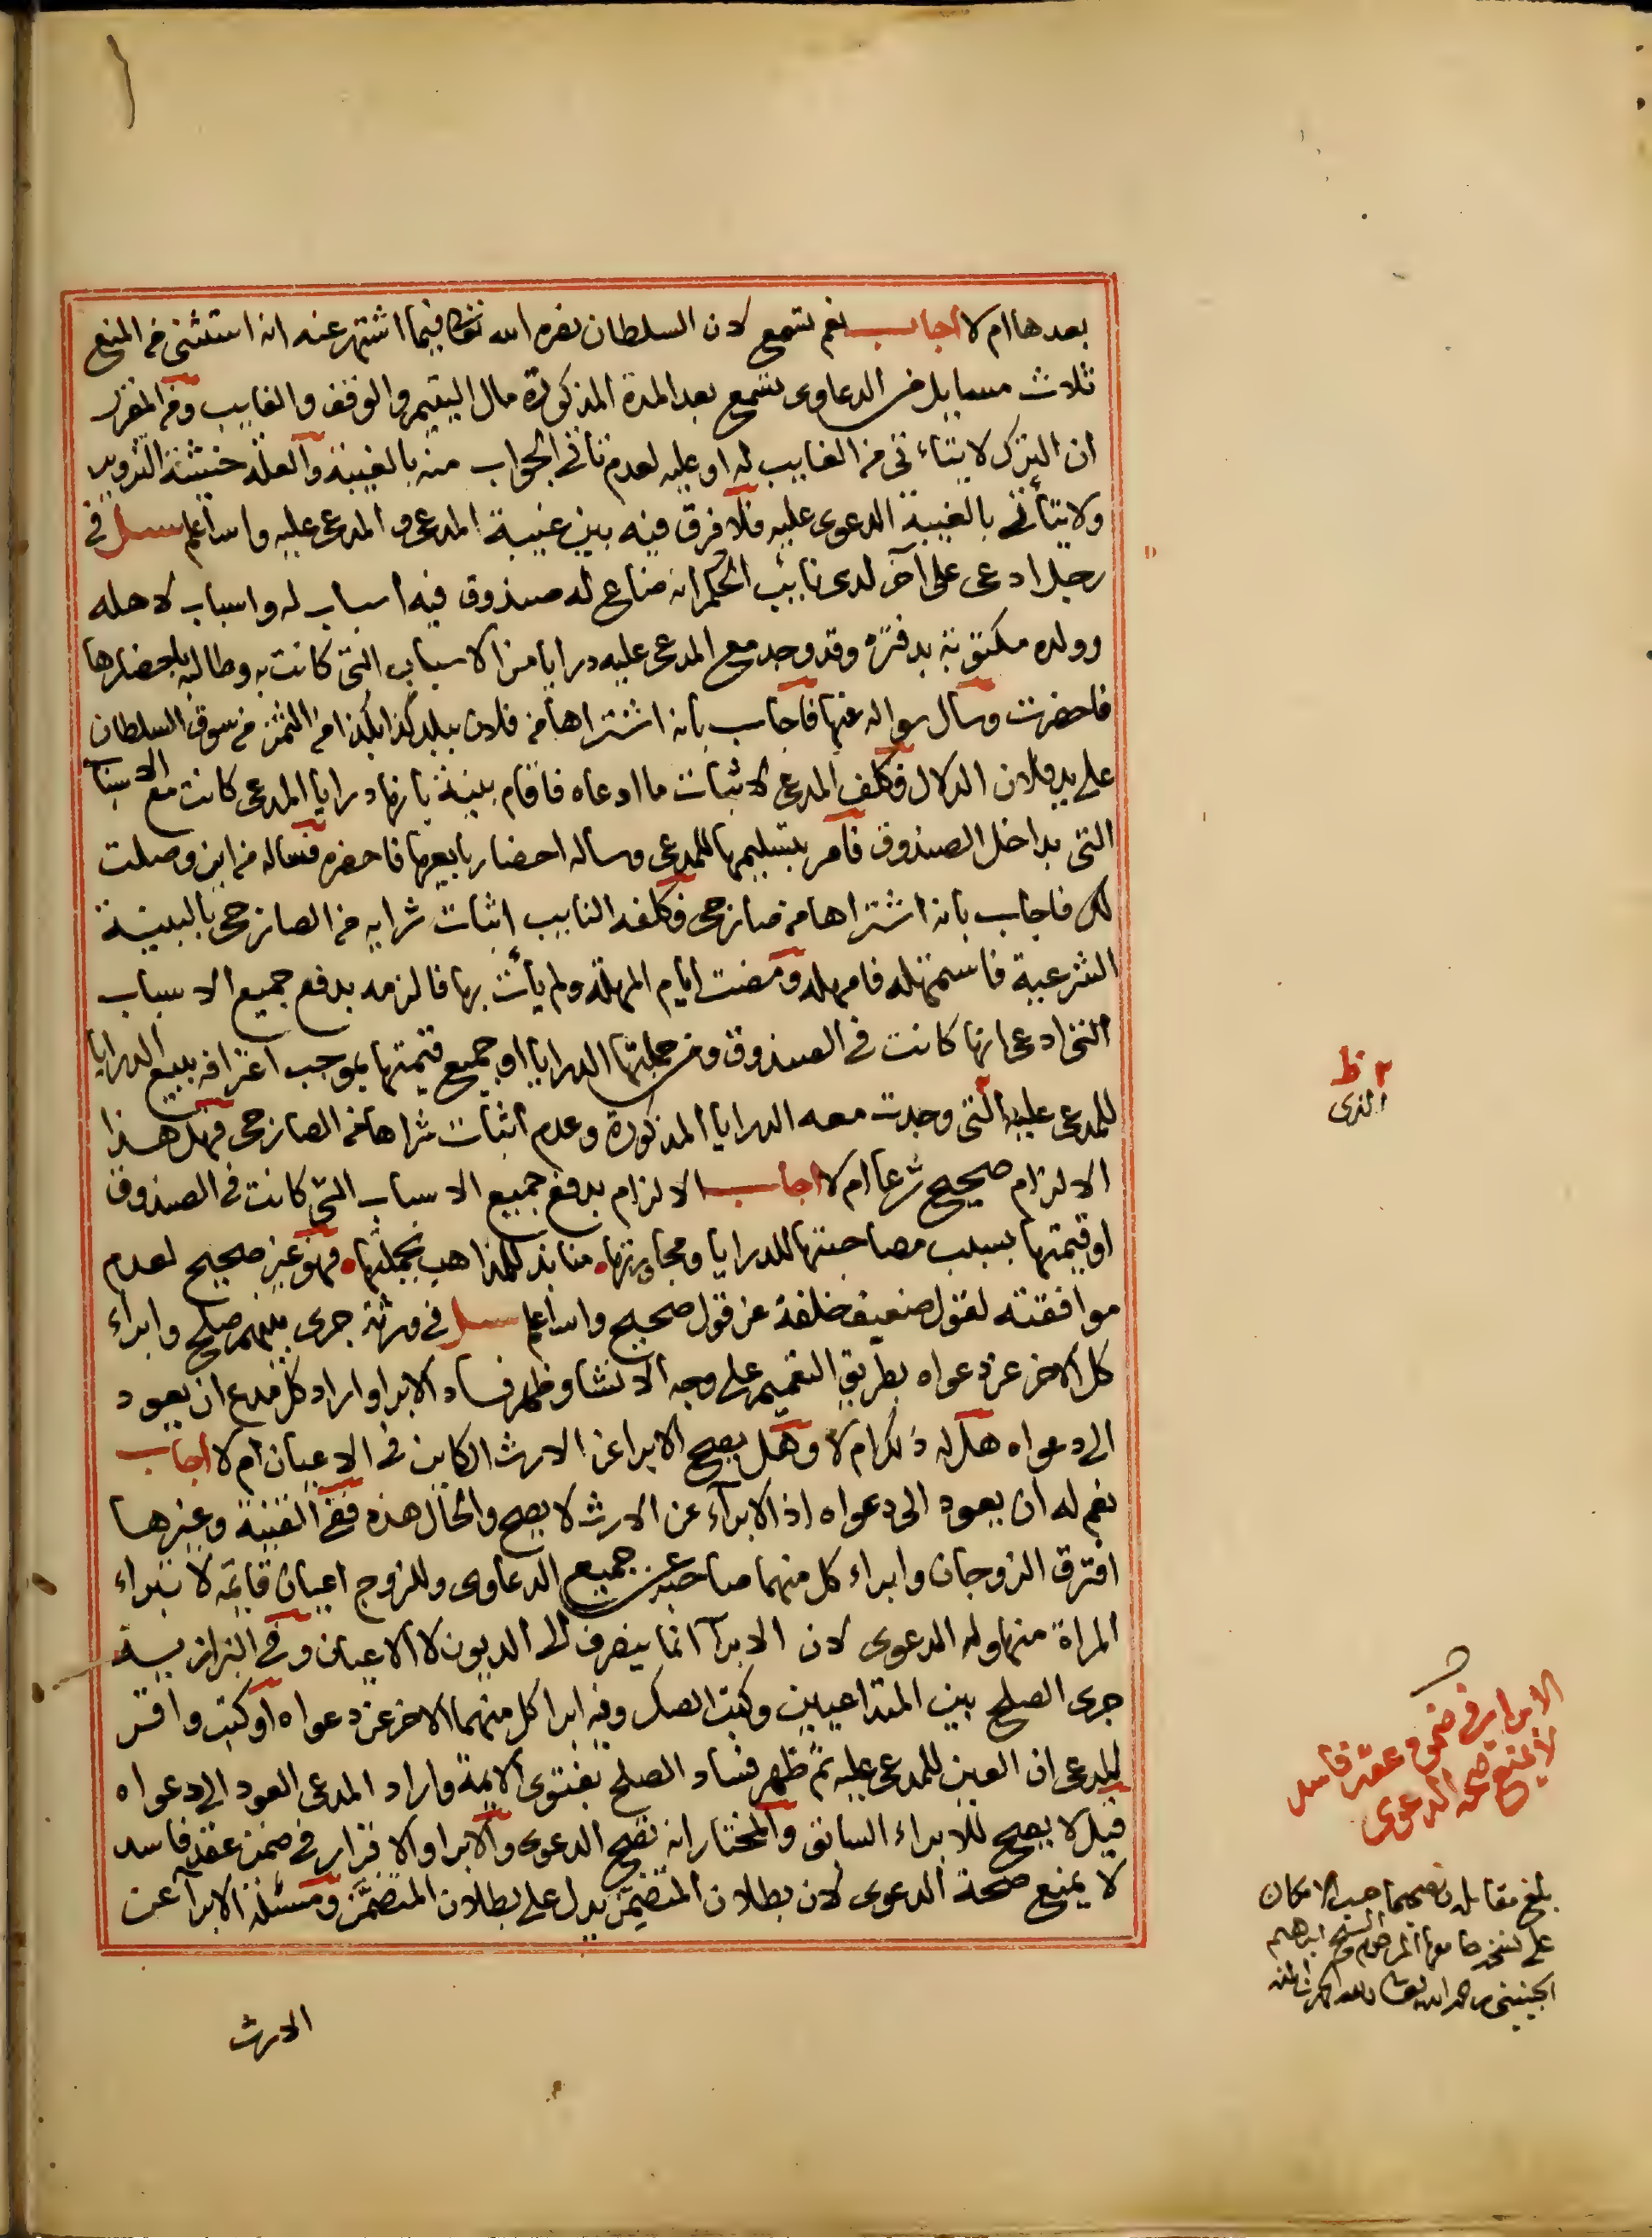 بعدها ام لا اجاب نعم تسمع لان السلطان نصره الله تعالى فيما اشتهر عنه انه استثنى من المنع
ثلاث مسايل من الدعاوى تسمع بعد المدة المذكورة مال اليتيم والوقف والغايب ومن المقرر
ان الترك لا يتاءتى من الغايب له او عليه لعدم تاتى الجواب منه بالغيبة والعلة خشية التزوير
ولا يتأتى بالغيبة الدعوى عليه فلا فرق فيه بين غيبة المدعى و المدعى عليه والله اعلم سئل في
رجل ادعى على آخر لدى نايب الحكم انه ضاع له صندوق فيه اسباب له واسباب لاهله
وولده مكتوبة بدفتره وقد وجد مع المدعى عليه درايا من الاسباب التى كانت به وطالبه باحضارها
فاحضرت وسال سواله عنها فاجاب بانه اشتراها من فلان ببلد كذا بكذا من الثمن من سوق السلطان
على يد فلان الدلال فكلف المدعى لاثبات ما ادعاه فاقام بينة بانها درايا المدعى كانت مع الاسباب
التى بداخل الصندوق فامر بتسليمها للمدعى وساله احضار بايعها فاحضره فساله من اين وصلت
لك فاجاب بانه اشتراها من صانزجى فكلفه النايب اثبات شرايه من الصانزجى بالبينة
الشرعية فاستمهله فامهله ومضت ايام المهلة ولم يأت بها فالزمه بدفع جميع الاسباب
التى ادعى انها كانت في الصندوق ومن جملتها الدرايا او جميع قيمتها بموجب اعترافه ببيع الدرايا
للمدعى عليه التى وجدت معه الدرايا المذكورة وعدم اثبات شراها من الصانزجى فهل هذا
الالزام صحيح شرعا ام لا اجاب الالزام بدفع جميع الاسباب التى كانت في الصندوق
او قيمتها بسبب مصاحبتها للدرايا ومجاورتها منابذ للمذاهب بجملتها فهو غير صحيح لعدم
موافقته لقول ضعيف خلفة عن قول صحيح والله اعلم سئل في ورثة جرى بينهم صلح وابراء
كل الاخر عن دعواه بطريق التعميم على وجه الانشا وظهر فساد الابرا واراد كل مدع ان يعود
الى دعواه هل له ذلك ام لا وهل يصح الابرا عن الارث الكاين في الاعيان ام لا اجاب
نعم له ان يعود الى دعواه اذ الابرآء عن الارث لا يصح والحال هذه ففى القنية وغيرها
افترق الزوجان وابراء كل منهما صاحبه عن جميع الدعاوى وللزوج اعيان قايمة لا تبراء
المراة منها وله الدعوى لان الابرآ انما ينصرف الى الديون لا الاعيان وفي البزازية
جرى الصلح بين المتداعيين وكتب الصك وفيه ابرا كل منهما الاخر عن دعواه او كتب واقر
المدعى ان العين للمدعى عليه ثم ظهر فساد الصلح بفتوى الايمة واراد المدعى العود الى دعواه
قيل لا يصح للابراء السابق والمختار انه تصح الدعوى والابرا والاقرار في ضمن عقد فاسد
لا يمنع صحة الدعوى لان بطلان المتضمن يدل على بطلان المتضمن ومسئلة الابرآ عن
الارث
ظ
الذى
الابرا في ضمن عقد فاسد
لا يمنع صحة الدعوى
بلغ مقابلة وتصحيحا حسب الامكان
على نسخة جامعها المرحوم الشيخ ابراهيم
الجينينى رحمه الله تعالى